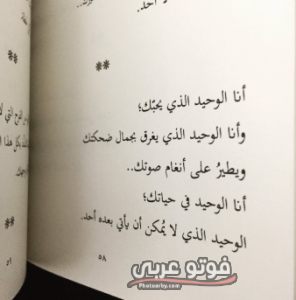 أحد.
**
أنا الوحيد الذي يحبّك؛
وأنا الوحيد الذي يغرق بجمال ضحكتك
ويطيرُ على أنغام صوتك..
أنا الوحيد في حياتك؛
الوحيد الذي لا يُمكن أن يأتي بعده أحد.
٥٨
**
٥٩
فوتو عربي
Photoarby.com